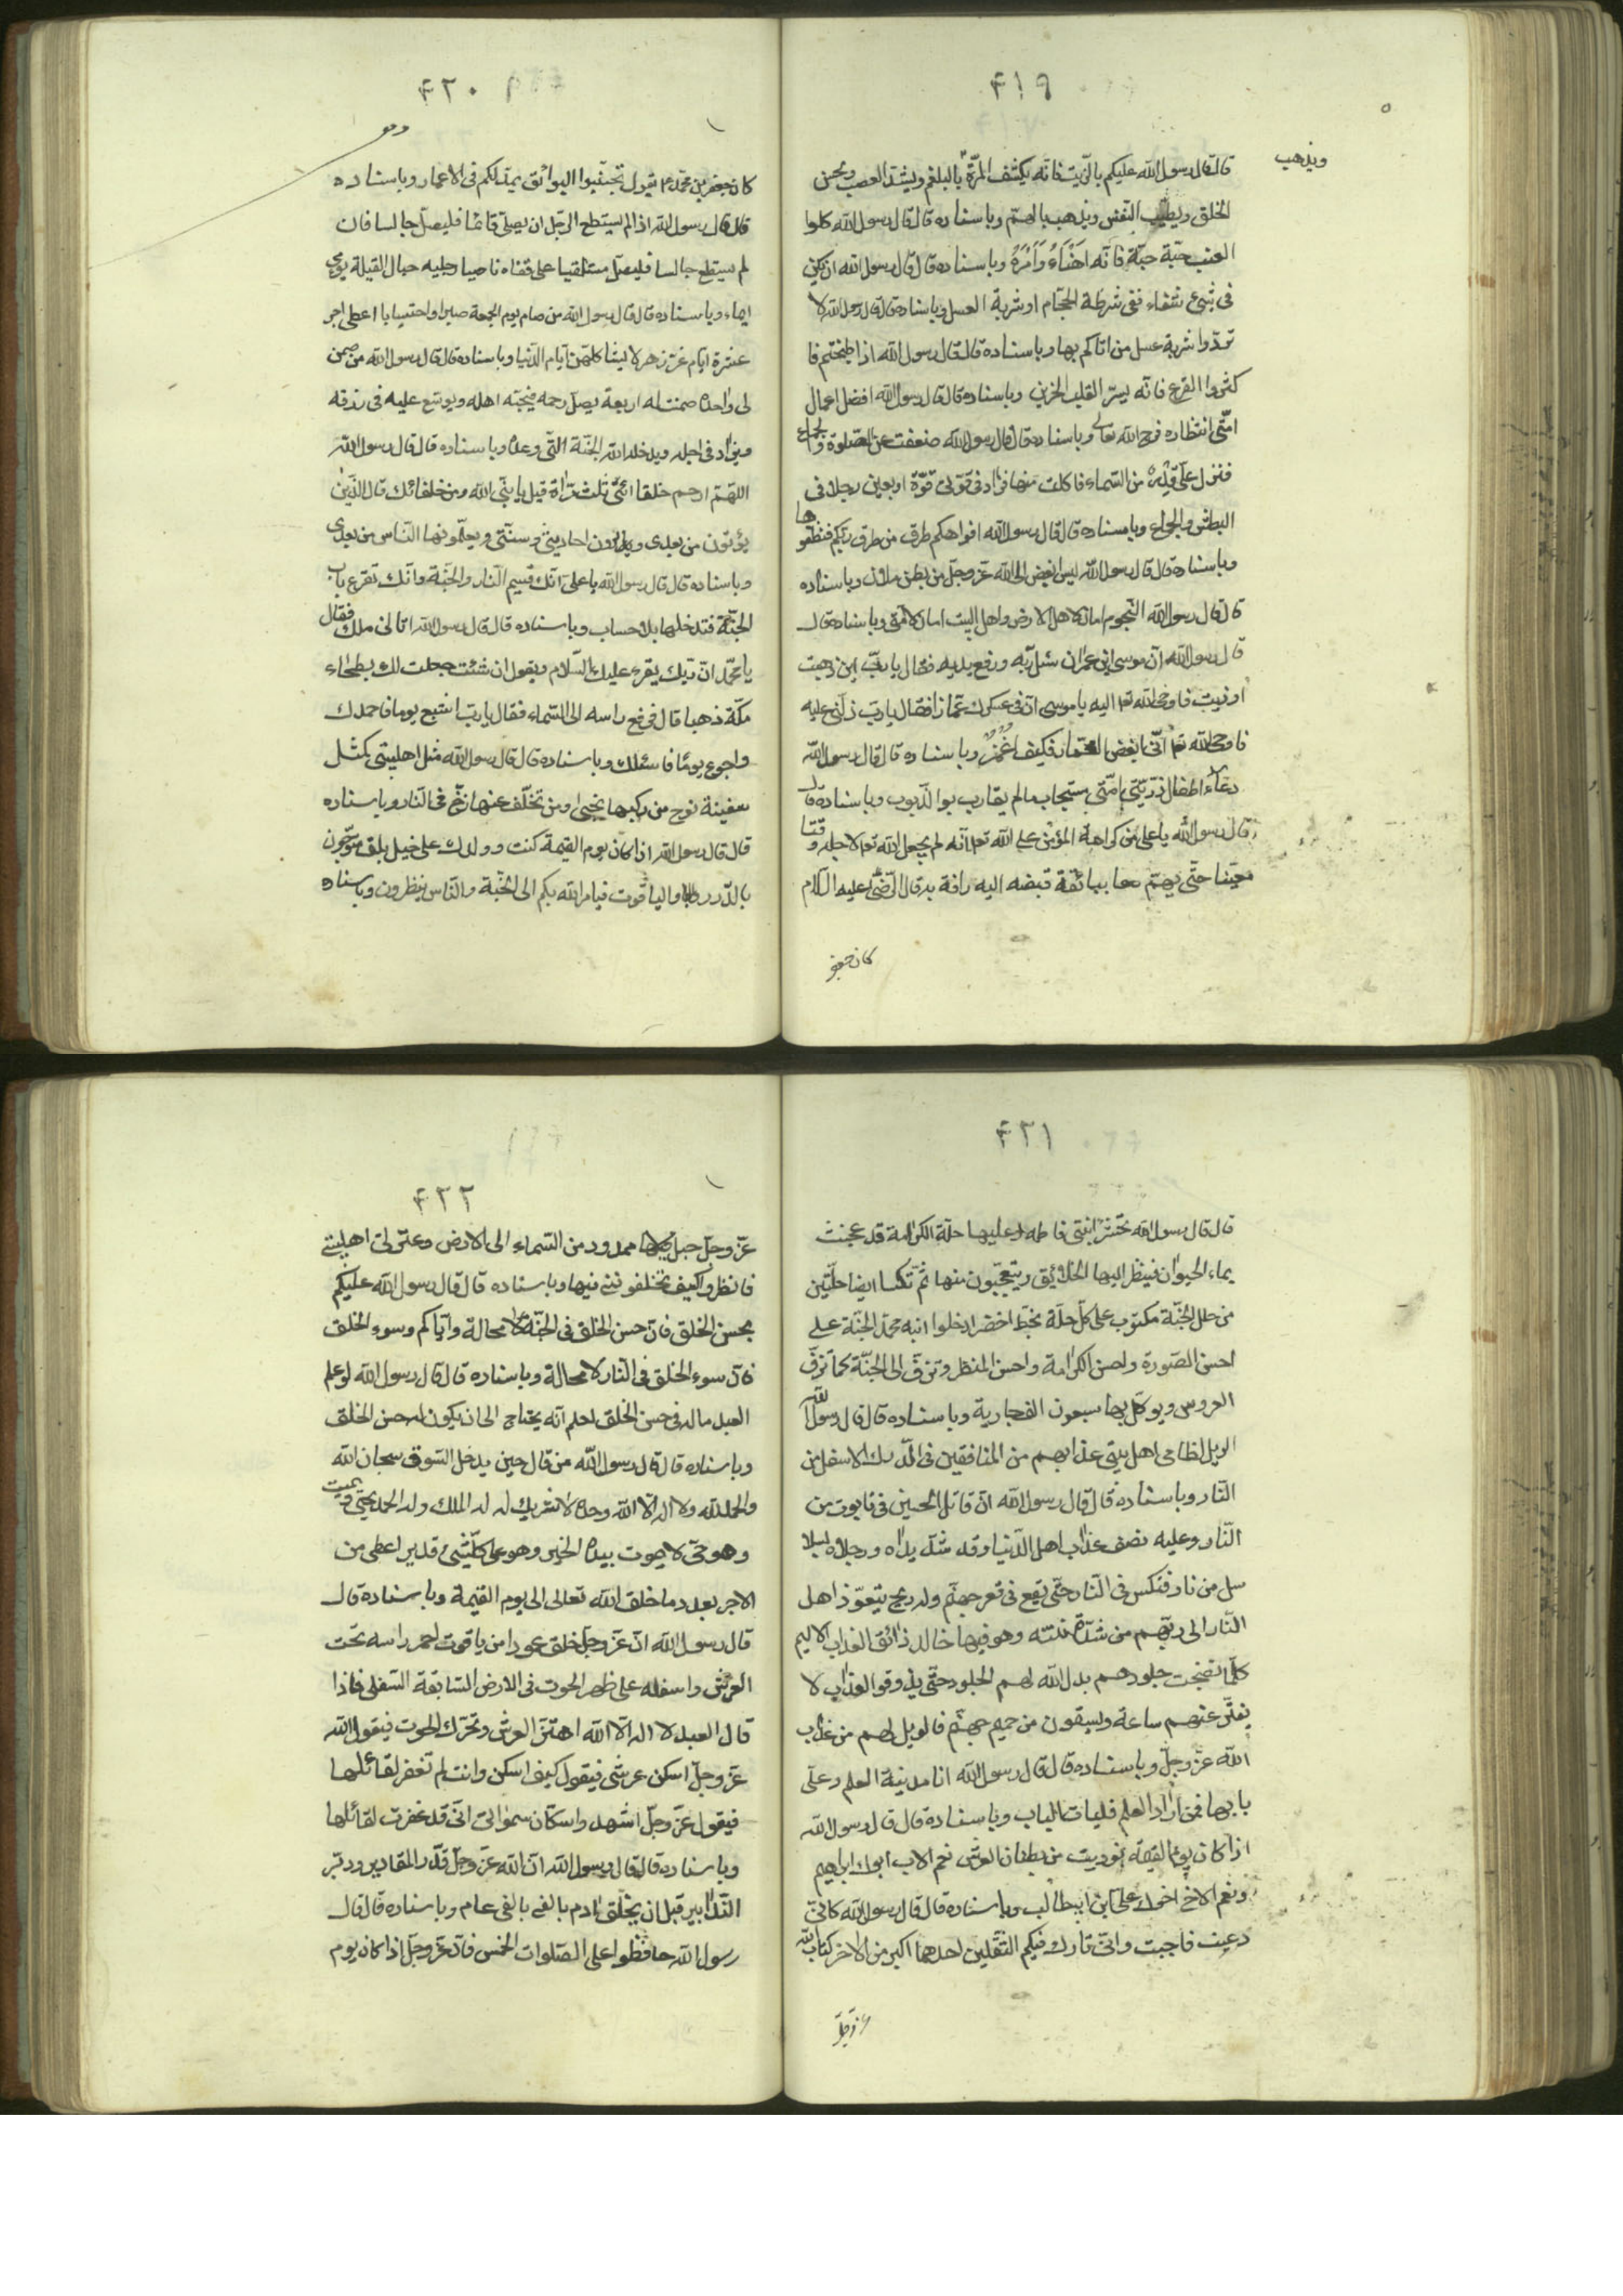 ۴۱۹
ويذهب
قال قال رسول الله عليكم بالزّيت فانّه يكشف المرّة بالبلغم ويشدّ العصب ويحسن
الخلق ويطيّب النّفس ويذهب بالهمّ وباسناده قال قال رسول الله كلوا
العنب حبّة حبّة فانّه اهنأ وامرأ وباسناده قال قال رسول الله ان يكن
فى شئ شفاء ففى شرطة الحجّام او شربة العسل وباسناده قال قال رسول الله لا
تردّوا شربة عسل من اتاكم بها وباسناده قال قال رسول الله اذا طبختم فا
كثروا القرع فانّه يسرّ القلب الحزين وباسناده قال قال رسول الله افضل اعمال
امّتى انتظار فرج الله تعالى وباسناده قال قال رسول الله ضعفت عن الصّلوة والجماع
فنزل علىّ قدر من السّماء فاكلت منها فزاد فى قوّتى قوّة اربعين رجلا فى
البطش والجماع وباسناده قال قال رسول الله افواهكم طرق من طرق ربّكم فنظّفوها
وباسناده قال قال رسول الله ليس ابغض الى الله عزّ وجلّ من بطن ملان وباسناده
قال قال رسول الله النّجوم امان لاهل الارض واهل البيت امان لامّتى وباسناده قال
قال رسول الله انّ موسى ابن عمران سئل ربّه ورفع يديه فقال يا ربّ اين ذهبت
اوذيت فاوحى الله تعا اليه يا موسى انّ فى عسكرك غمّازا فقال يا ربّ دلّنى عليه
فاوحى الله تعا انّى ابغض الغمّاز فكيف اغمز وباسناده قال قال رسول الله
دعاء اطفال ذرّيّتى امّتى مستجاب ما لم يقاربوا الذّنوب وباسناده قال
قال رسول الله يا على من كرامة المؤمن على الله تعا انّه لم يجعل الله تعا لاجله وقتا
معيّنا حتّى يهمّ معا ببائقة قبضه اليه رافة به قال الرّضى عليه السّلام
كان جعفر
۴۲۰
كان جعفر بن محمّد ع يقول تجنّبوا البوائق يمدّ لكم فى الاعمار وباسناده
قال قال رسول الله اذا لم يستطع الرّجل ان يصلّى قائما فليصلّ جالسا فان
لم يستطع جالسا فليصلّ مستلقيا على قفاه ناصبا رجليه حيال القبلة يومى
ايماء وباسناده قال قال رسول الله من صام يوم الجمعة صبرا واحتسابا اعطى اجر
عشرة ايّام غرّ زهر لا يشاكلهنّ ايّام الدّنيا وباسناده قال قال رسول الله من ضمن
لى واحدة ضمنت له اربعة يصل رحمه فيحبّه اهله ويوسّع عليه فى رزقه
ويزاد فى اجله ويدخله الله الجنّة الّتى وعده وباسناده قال قال رسول الله
اللهمّ ارحم خلفائى ثلث مرّات قيل يا نبىّ الله ومن خلفائك قال الّذين
يؤتون من بعدى ويروون احاديثى وسنّتى ويعلّمونها النّاس من بعدى
وباسناده قال قال رسول الله يا على انّك قسيم النّار والجنّة وانّك تقرع باب
الجنّة فتدخلها بلا حساب وباسناده قال قال رسول الله اتانى ملك فقال
يا محمّد انّ ربّك يقرء عليك السّلام ويقول ان شئت جعلت لك بطحاء
مكّة ذهبا قال فرفع راسه الى السّماء فقال يا ربّ اشبع يوما فاحمدك
واجوع يوما فاسئلك وباسناده قال قال رسول الله مثل اهل بيتى كمثل
سفينة نوح من ركبها نجى ومن تخلّف عنها زخّ فى النّار وباسناده
قال قال رسول الله اذا كان يوم القيمة كنت وولدك على خيل بلق متوّجون
بالدّرر والياقوت فيامر الله بكم الى الجنّة والنّاس ينظرون وباسناده
۴۲۱
قال قال رسول الله تحشر ابنتى فاطمه وعليها حلّة الكرامة قد عجنت
بماء الحيوان فينظر اليها الخلايق ويتعجّبون منها ثمّ تكسا ايضا حلّتين
من حلل الجنّة مكتوب على كلّ حلّة بخطّ اخضر ادخلوا ابنة محمّد الجنّة على
احسن الصّورة واحسن الكرامة واحسن المنظر وتزفّ الى الجنّة كما تزفّ
العروس ويوكّل بها سبعون الف جارية وباسناده قال قال رسول الله
الويل لظالمى اهل بيتى عذابهم من المنافقين فى الدّرك الاسفل من
النّار وباسناده قال قال رسول الله انّ قاتل الحسين فى تابوت من
النّار وعليه نصف عذاب اهل الدّنيا وقد شدّ يداه ورجلاه بسلا
سل من نار فنكس فى النّار حتّى يقع فى قعر جهنّم وله ريح يتعوّذ اهل
النّار الى ربّهم من شدّة نتنه وهو فيها خالد ذائق العذاب الاليم
كلّما نضجت جلودهم بدل الله لهم الجلود حتّى يذوقوا العذاب لا
يفتّر عنهم ساعة ويسقون من حميم جهنّم فالويل لهم من عذاب
الله عزّ وجلّ وباسناده قال قال رسول الله انا مدينة العلم وعلى
بابها فمن اراد العلم فليات الباب وباسناده قال قال رسول الله
اذا كان يوم القيمة نوديت من بطنان العرش نعم الاب ابوك ابراهيم
ونعم الاخ اخوك على ابن ابيطالب وباسناده قال قال رسول الله كانّى
دعيت فاجبت وانّى تارك فيكم الثّقلين احدهما اكبر من الاخر كتاب الله
عزّ وجلّ
۴۲۲
عزّ وجلّ حبل ممدود من السّماء الى الارض وعترتى اهل بيتى
فانظروا كيف تخلفوننى فيها وباسناده قال قال رسول الله عليكم
بحسن الخلق فانّ حسن الخلق فى الجنّة لا محالة وايّاكم وسوء الخلق
فانّ سوء الخلق فى النّار لا محالة وباسناده قال قال رسول الله لو علم
العبد ما له فى حسن الخلق لعلم انّه يحتاج الى ان يكون له حسن الخلق
وباسناده قال قال رسول الله من قال حين يدخل السّوق سبحان الله
والحمد لله ولا اله الّا الله وحده لا شريك له له الملك وله الحمد يحيى ويميت
وهو حىّ لا يموت بيده الخير وهو على كلّ شئ قدير اعطى من
الاجر بعدد ما خلق الله تعالى الى يوم القيمة وباسناده قال
قال رسول الله انّ عزّ وجلّ خلق عمودا من ياقوت احمر راسه تحت
العرش واسفله على ظهر الحوت فى الارض السّابعة السّفلى فاذا
قال العبد لا اله الّا الله اهتزّ العرش وتحرّك الحوت فيقول الله
عزّ وجلّ اسكن عرشى فيقول كيف اسكن وانت لم تغفر لقائلها
فيقول عزّ وجلّ اشهدوا سكّان سمواتى انّى قد غفرت لقائلها
وباسناده قال قال رسول الله انّ الله عزّ وجلّ قدّر المقادير ودبّر
التّدابير قبل ان يخلق ادم بالفى عام وباسناده قال قال
رسول الله حافظوا على الصّلوات الخمس فانّ عزّ وجلّ اذا كان يوم